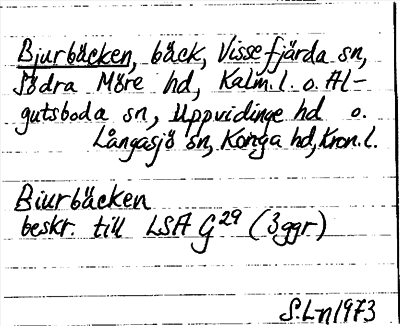 Bjurbäcken, bäck, Vissefjärda sn,
Södra Möre hd, Kalm. l. o. Al-
gutsboda sn, Uppvidinge hd o.
Långasjö sn, Konga hd, Kron. l.
Biurbäcken
beskr. till LSA G29 (3 ggr)
S. Ln 1973